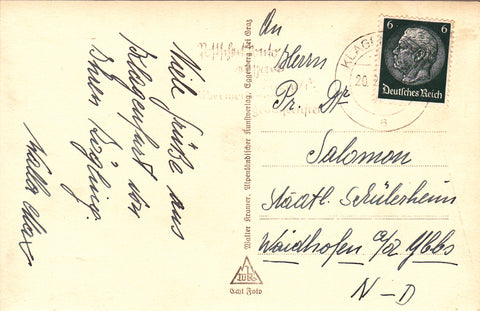 Viele Grüße aus
Klagenfurt von
Ihrem Zögling
An
Herrn
Pr. Dr.
Salomon
Staatl. Schülerheim
Waidhofen a/d Ybbs
N-D
6 6
Deutsches Reich
KLAG
20.
a
Postscheckkonto
Walter Kramer, Alpenländischer Kunstverlag, Eggenberg bei Graz
Echt Foto